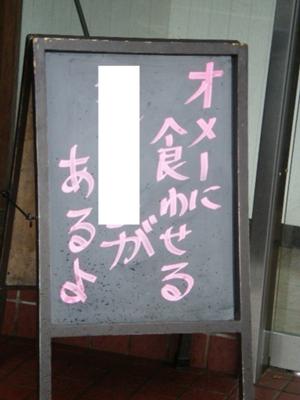 オメーに
食わせる
が
あるよ